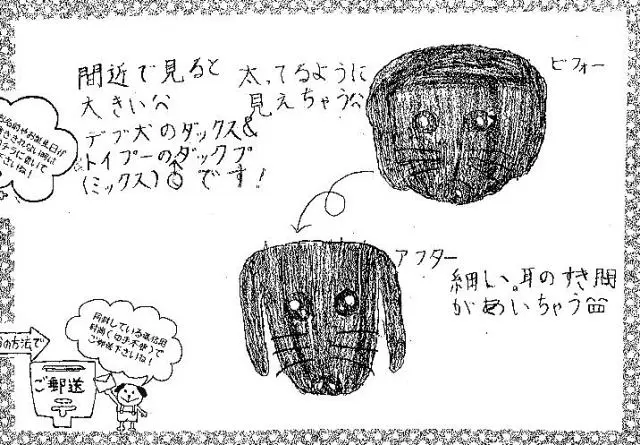 間近で見ると
大きいな
デブ犬のダックス&
トイプーのダックプ
(ミックス)♂です!
太ってるように
見えちゃうな
ビフォー
アフター
細い。耳のすき間
があいちゃう
コチラに書いて
下さいね!
同封している返信用
封筒(切手不要)で
ご郵送下さいね!
の方法で
ご郵送